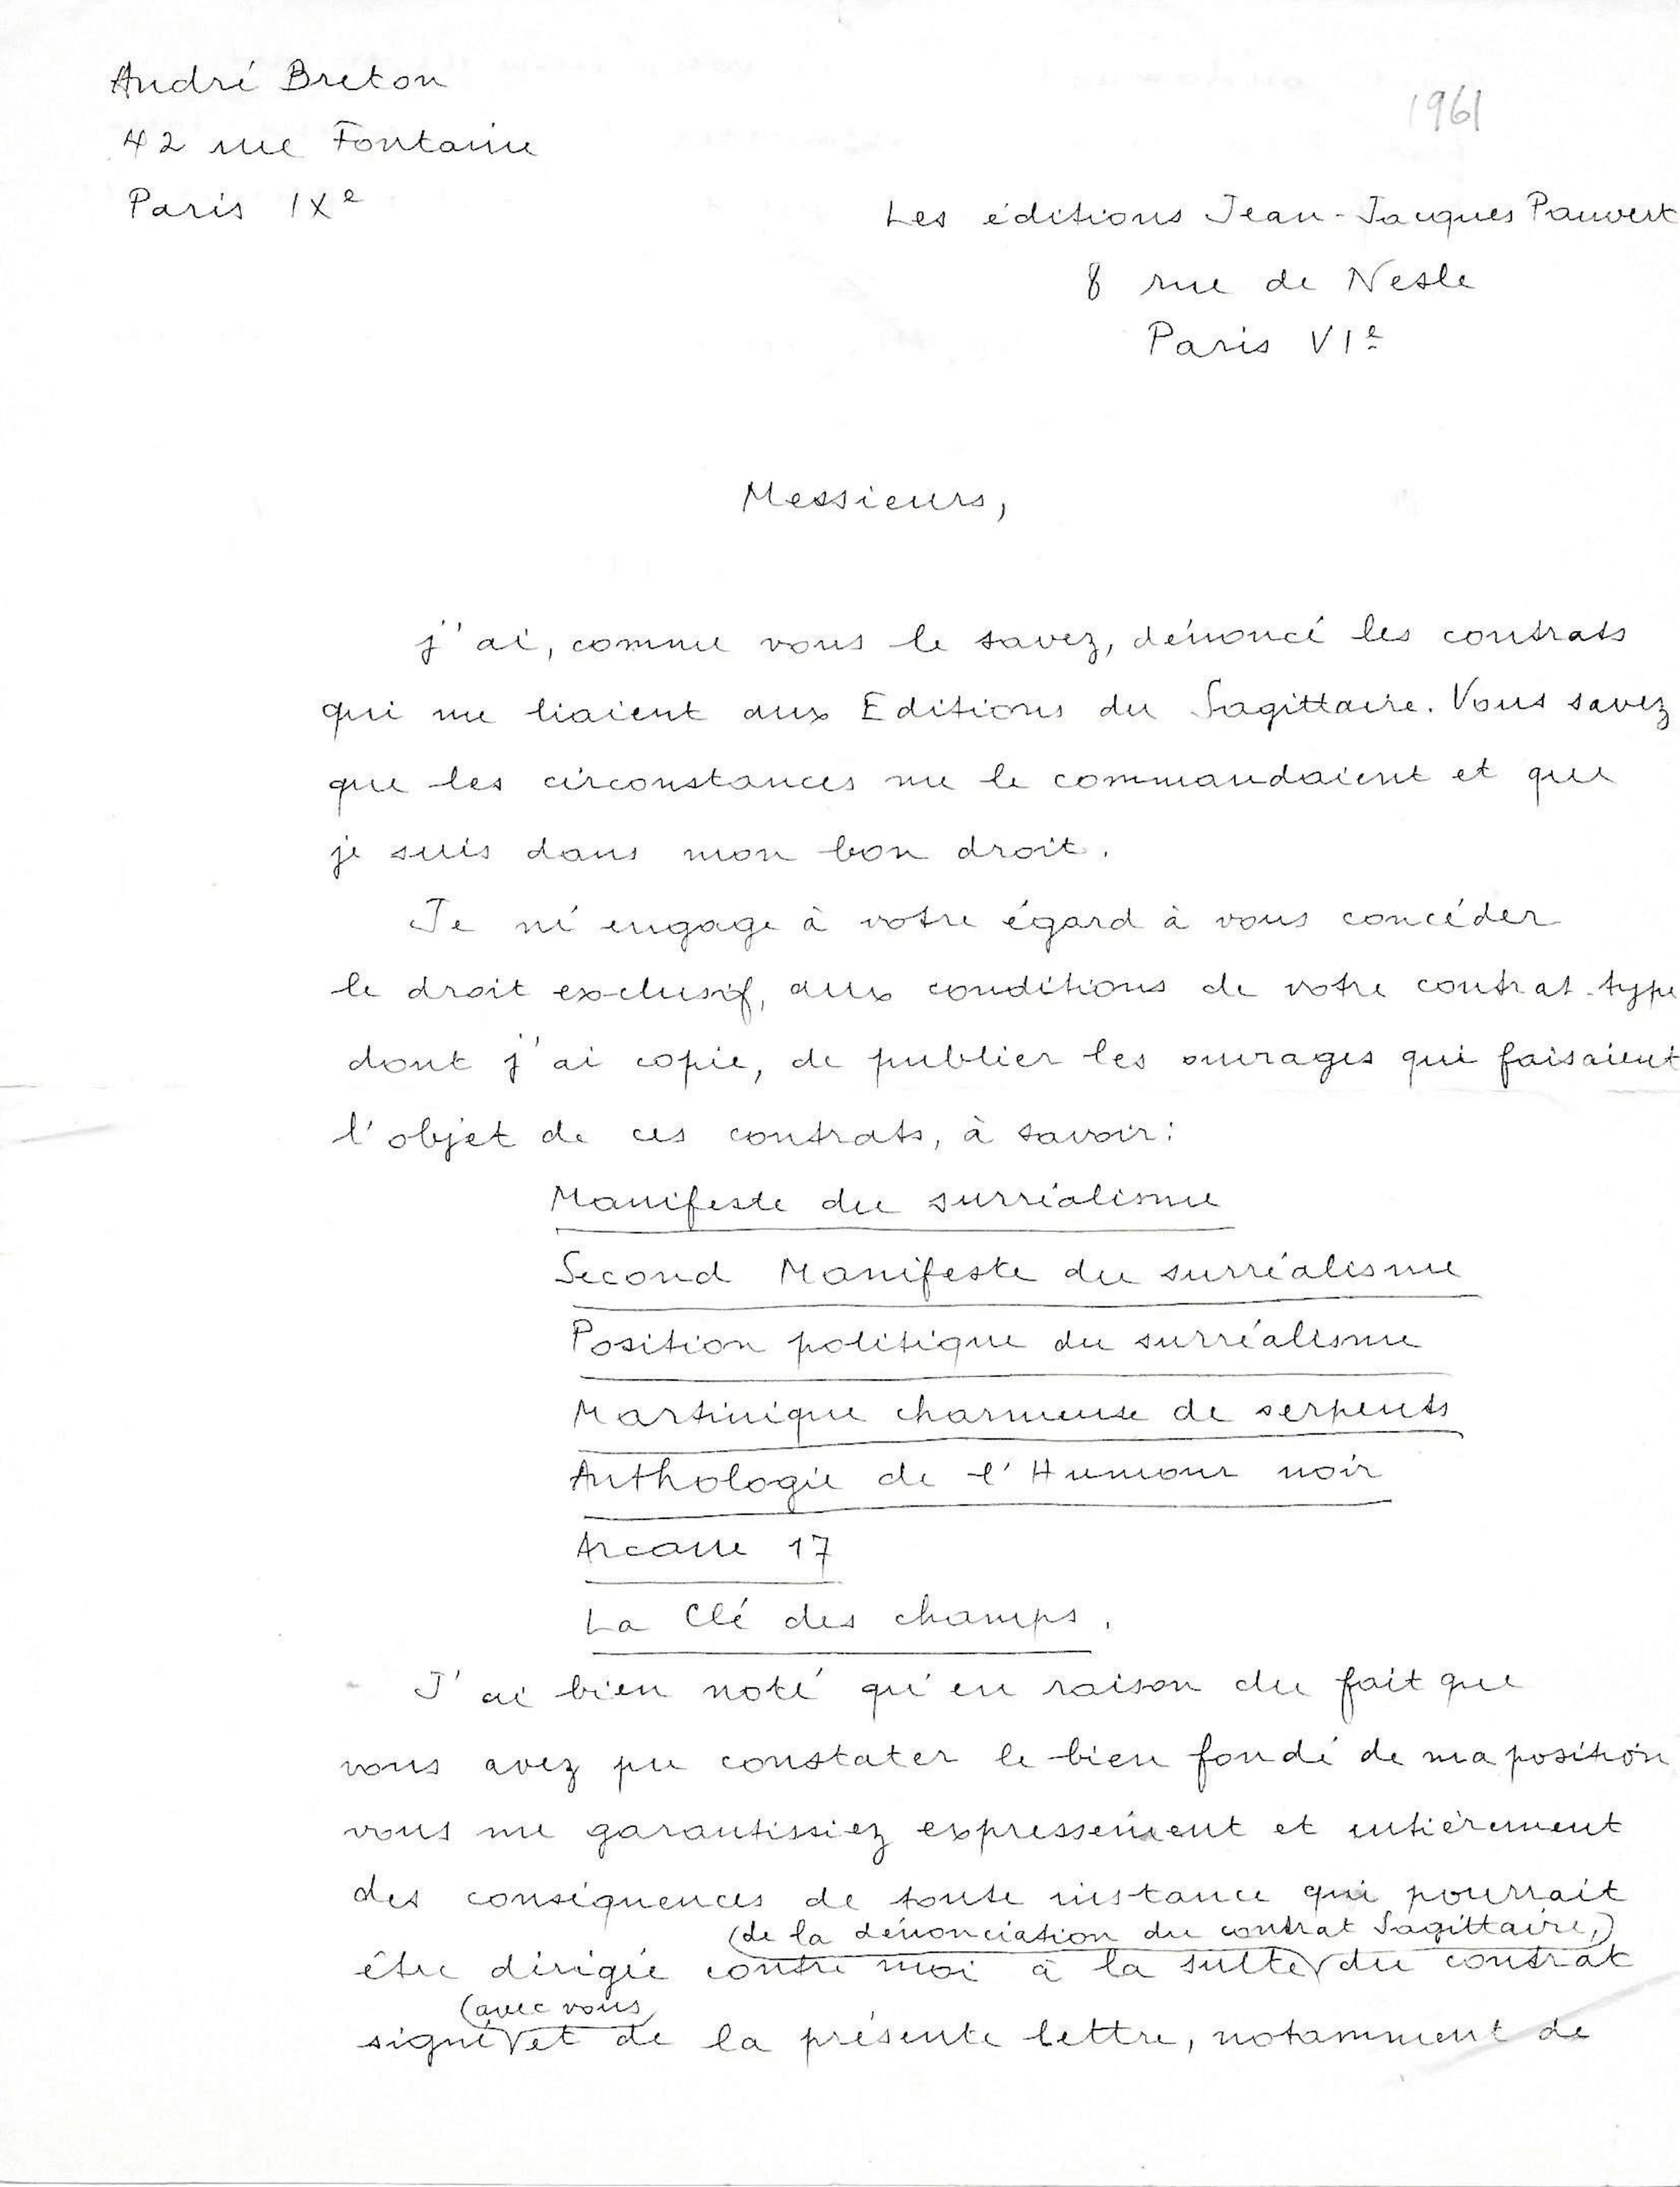 André Breton
42 rue Fontaine
Paris IXe
1961
Les éditions Jean-Jacques Pauvert
8 rue de Nesle
Paris VIe
Messieurs,
j'ai, comme vous le savez, dénoncé les contrats
qui me liaient aux Editions du Sagittaire. Vous savez
que les circonstances me le commandaient et que
je suis dans mon bon droit.
Je m'engage à votre égard à vous concéder
le droit exclusif, aux conditions de votre contrat-type
dont j'ai copie, de publier les ouvrages qui faisaient
l'objet de ces contrats, à savoir:
Manifeste du surréalisme
Second Manifeste du surréalisme
Position politique du surréalisme
Martinique charmeuse de serpents
Anthologie de l'Humour noir
Arcane 17
La Clé des champs.
J'ai bien noté qu'en raison du fait que
vous avez pu constater le bien fondé de ma position
vous me garantissiez expressément et entièrement
des conséquences de toute instance qui pourrait
(de la dénonciation du contrat Sagittaire,)
être dirigée contre moi à la suite du contrat
(avec vous
signé et de la présente lettre, notamment de